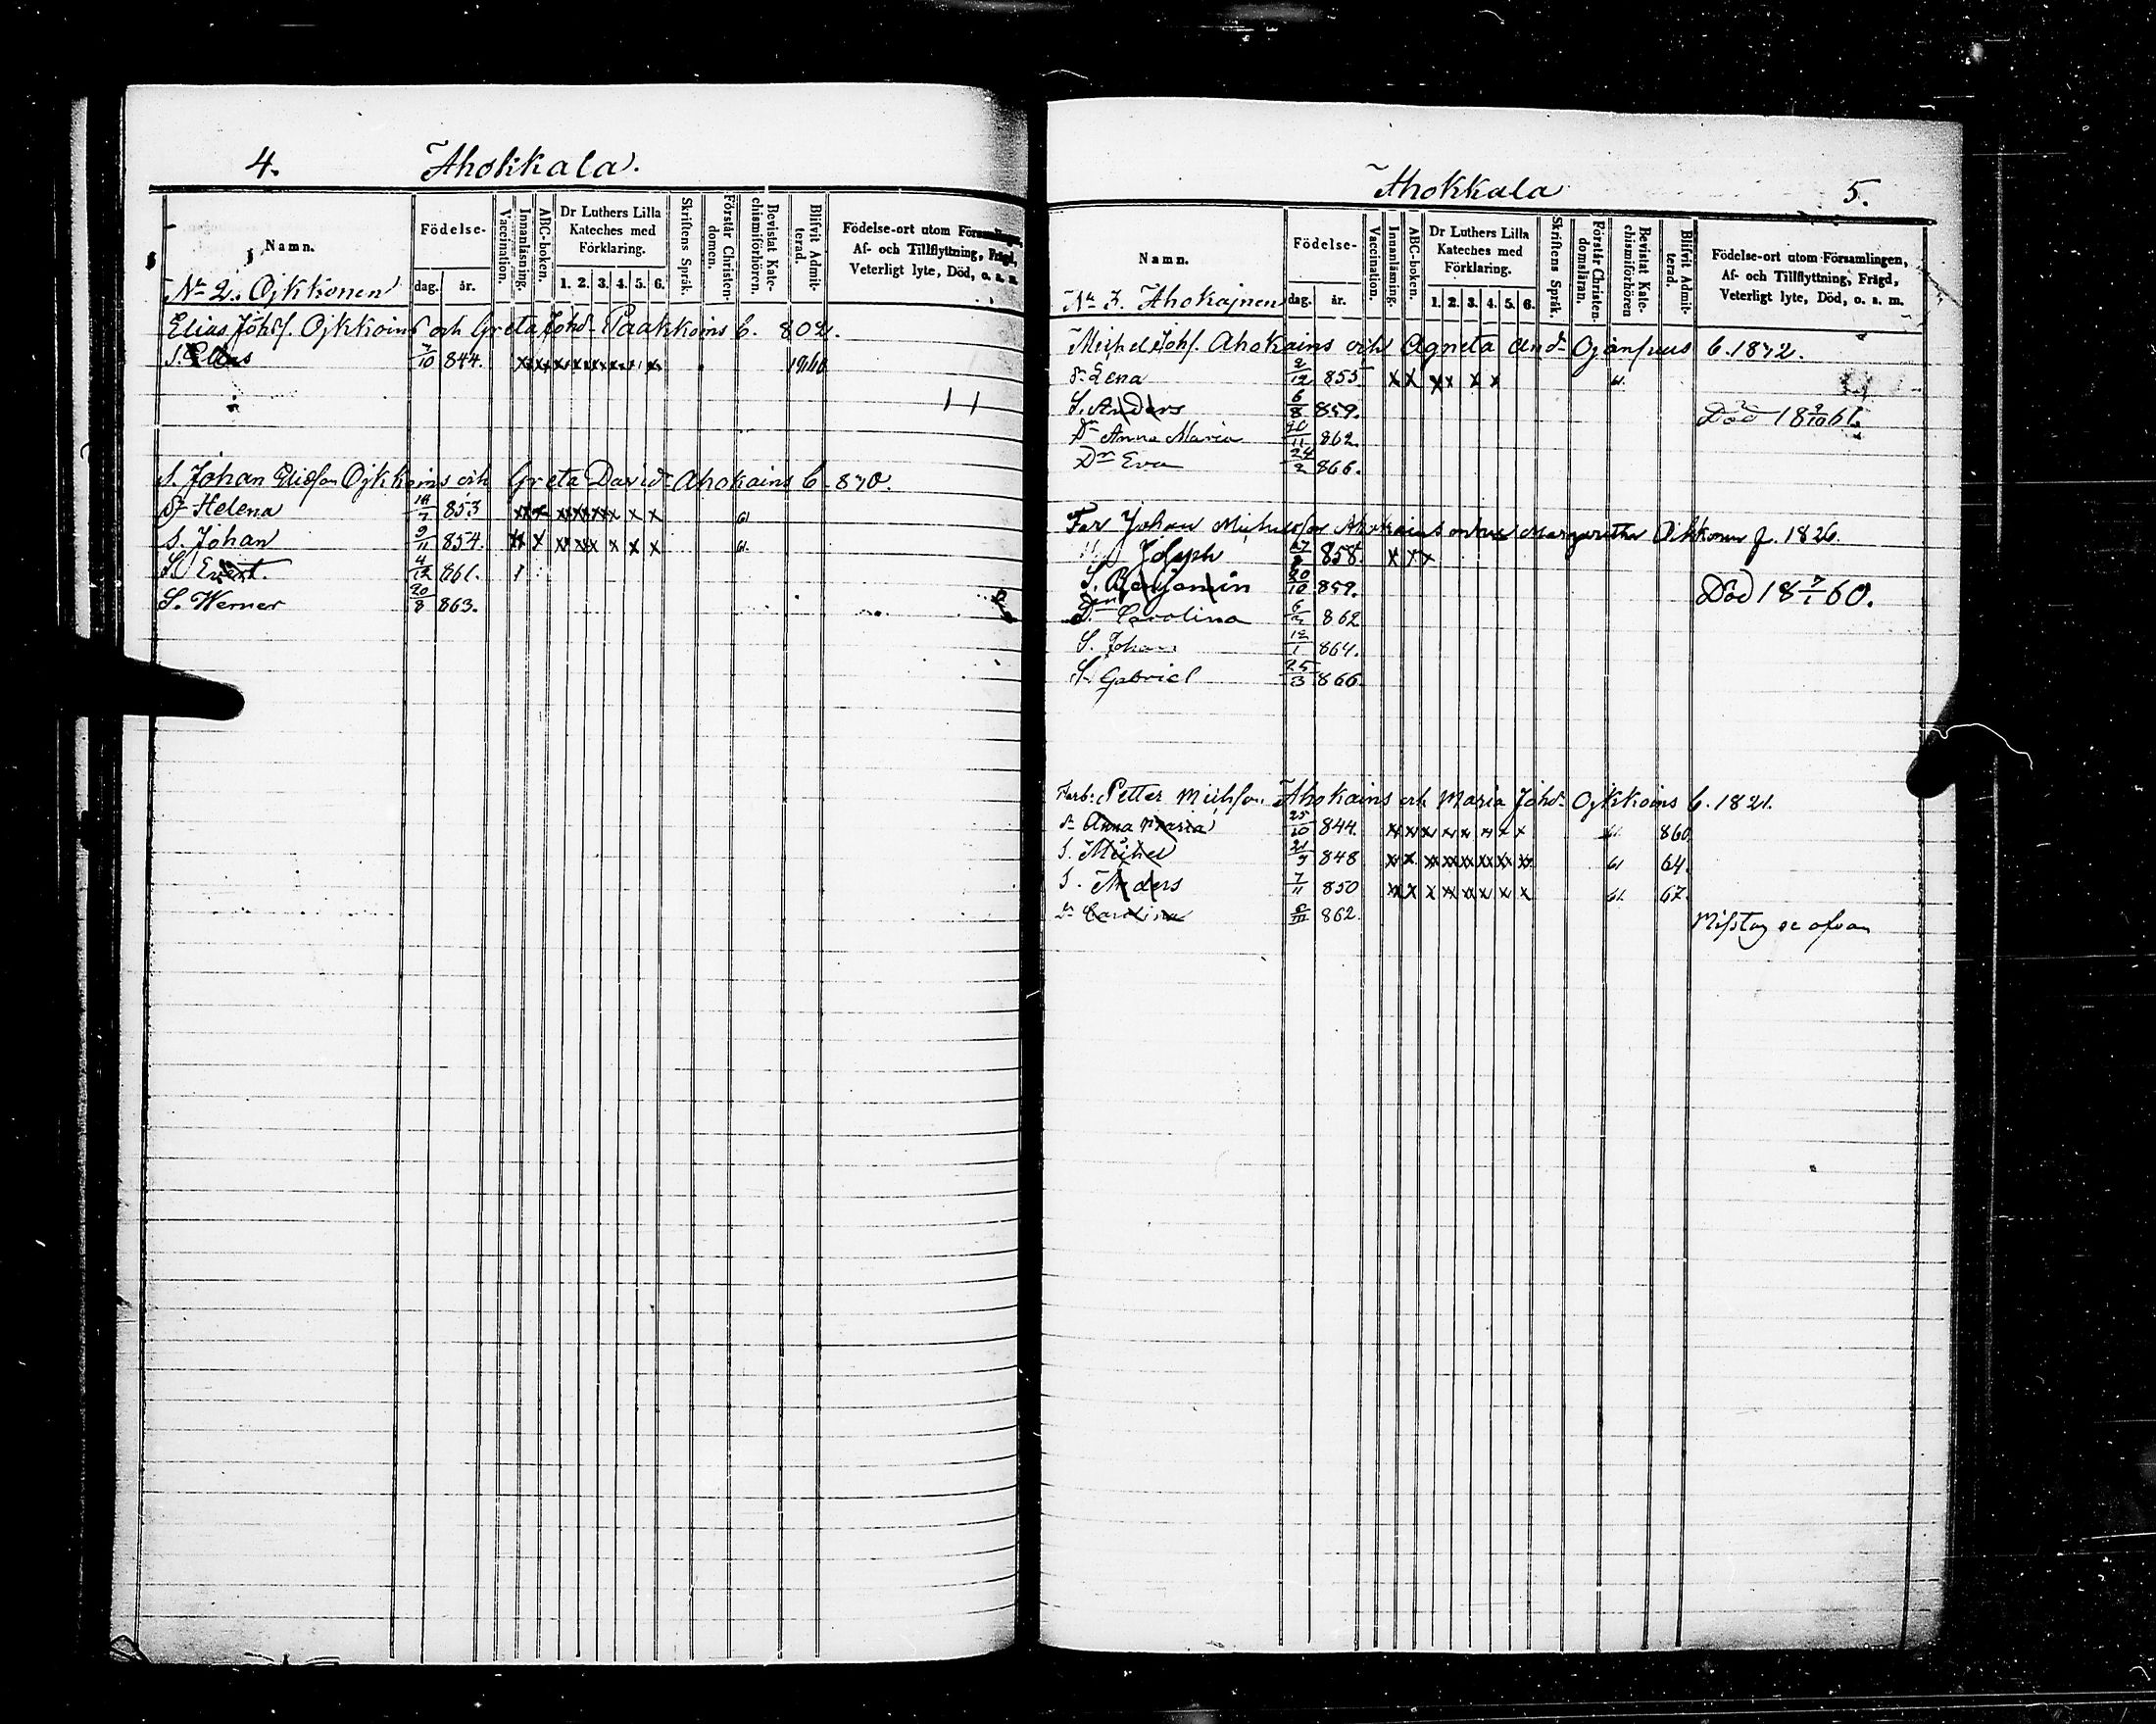 4. Ahokkala.
Namn. Födelse- dag. år. Vaccination. Innanläsning. ABC-boken. Dr Luthers Lilla Kateches med Förklaring. 1. 2. 3. 4. 5. 6. Skriftens Språk. Förstår Christendomen. Bevistat Katechismiförhören. Blifvit Admitterad. Födelse-ort utom Församlingen, Af- och Tillflyttning, Frägd, Veterligt lyte, Död, o. s. m.
No 2. Ojkkonen
Elias Johs. Ojkkoins och Greta Johd. Paakkoins b. 802.
S. Elias 7/10 844.
S. Johan Eliasson Ojkkoins och Greta Davidd Ahokains b. 870.
Dr Helena 853 x x x x x x x 61
S. Johan 9/11 854. x x x x x x x 61.
S. Evert. 4/12 861.
S. Werner 20/8 863.
Ahokkala 5.
Namn. Födelse- dag. år. Vaccination. Innanläsning. ABC-boken. Dr Luthers Lilla Kateches med Förklaring. 1. 2. 3. 4. 5. 6. Skriftens Språk. Förstår Christendomsläran. Bevistat Katechismiförhören Blifvit Admitterad. Födelse-ort utom Församlingen, Af- och Tillflyttning, Frägd, Veterligt lyte, Död, o. s. m.
No 3. Ahokajnen
Michel Johs. Ahokains och Agneta And. b. 1872.
Dr Lena 2/12 855 x x x x x x 61.
S. Anders 6/8 859. Död 18 9/10 61.
Dr Anna Maria 20/11 862.
Dr Eva 24/2 866.
Far Johan Michelsson Ahokains Margaretha Oikkonen f. 1826.
Joseph 858. x x x
S. Benjamin 20/10 859. Död 18 7/1 60.
Dr Carolina 862
S. Johan 12/1 864.
S. Gabriel 25/3 866.
Farb: Petter Michson Ahokains och Maria Johd Ojkkoins b. 1821.
Dr Anna Maria 25/10 844. x x x x x x x x 61. 860
S. Michel 21/9 848 x x x x x x x x 61 64.
S. Anders 7/11 850 x x x x x x x x 61. 67.
Dr Carolina 862. Misstag se ofvan